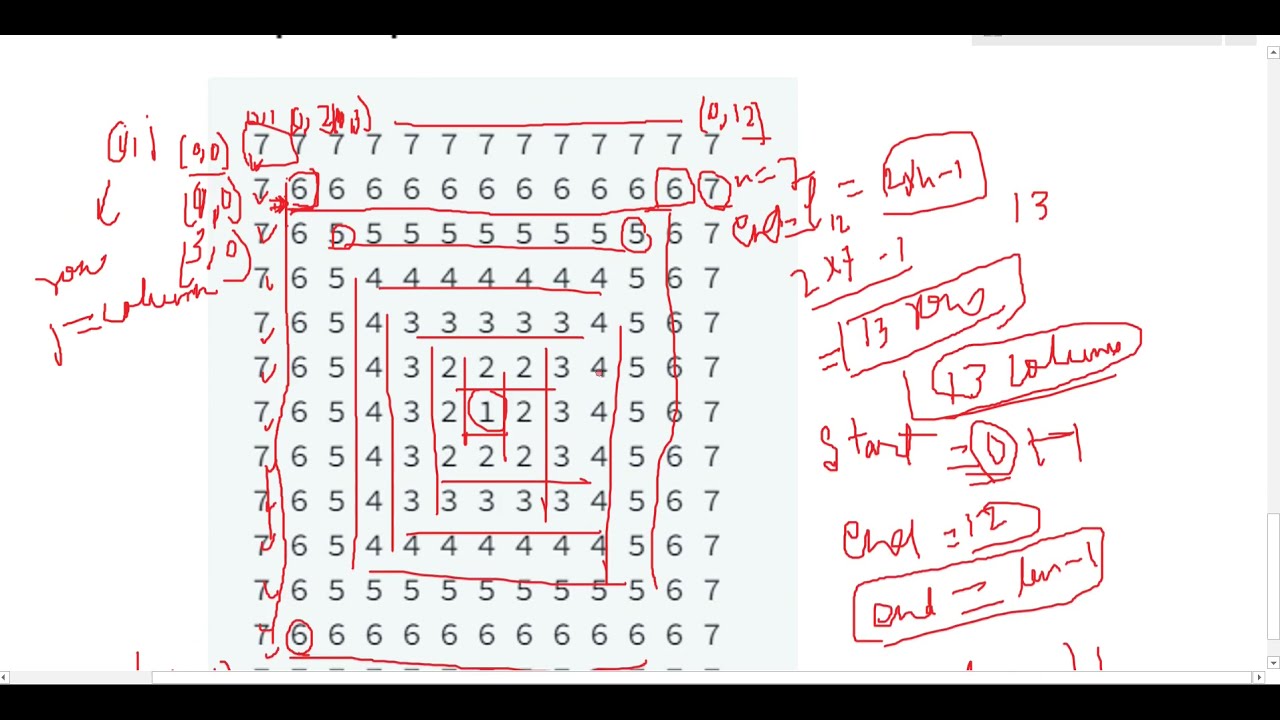 (0,12)
i,j (0,0) 7 7 7 7 7 7 7 7 7 7 7 7 7
7 6 6 6 6 6 6 6 6 6 6 6 7 n=7 = 2*n-1
(3,0) 7 6 5 5 5 5 5 5 5 5 5 6 7 end= 12 13
row 7 6 5 4 4 4 4 4 4 4 5 6 7 2*7-1
j=column 7 6 5 4 3 3 3 3 3 4 5 6 7 =13 rows
7 6 5 4 3 2 2 2 3 4 5 6 7 13 columns
7 6 5 4 3 2 1 2 3 4 5 6 7
7 6 5 4 3 2 2 2 3 4 5 6 7 start =0
7 6 5 4 3 3 3 3 3 4 5 6 7
7 6 5 4 4 4 4 4 4 4 5 6 7 end =12
7 6 5 5 5 5 5 5 5 5 5 6 7 end = len-1
7 6 6 6 6 6 6 6 6 6 6 6 7